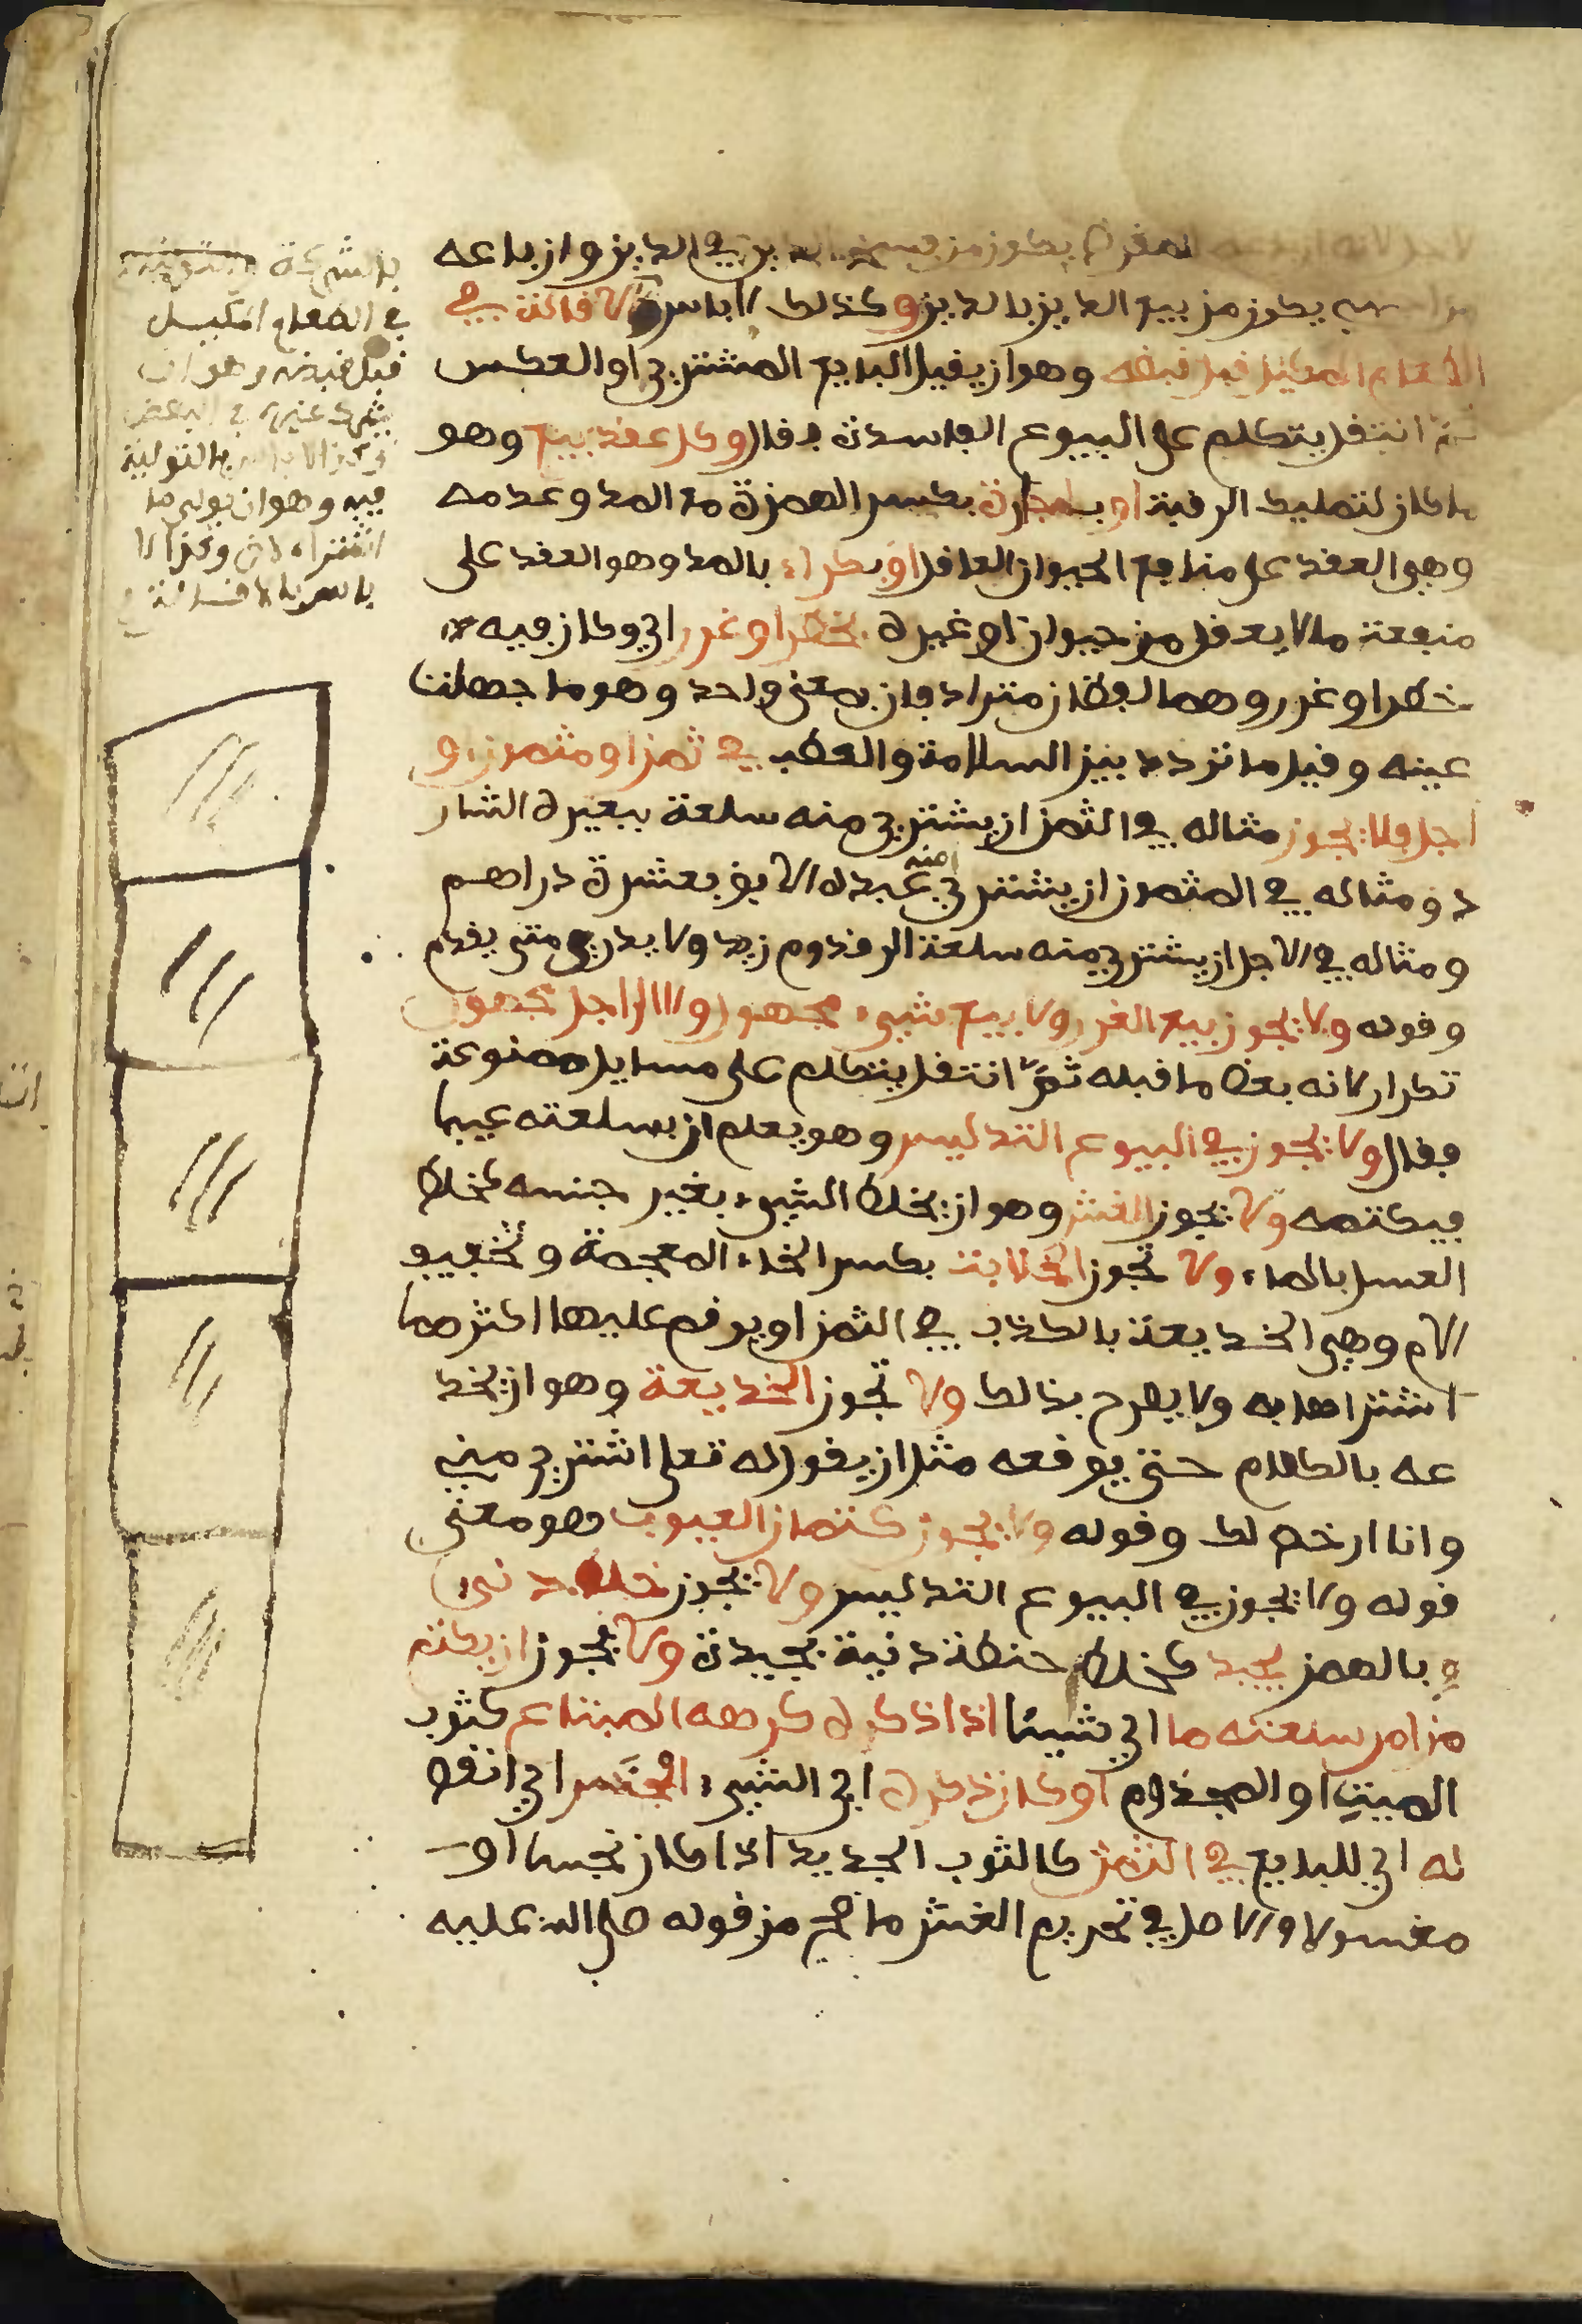 المقرض يكون من فسخ الدين في الدين وان باعه
يكون من بيع الدين بالدين وكذلك لا باس بالاقالة في
الطعام المكيل قبل قبضه وهو ان يقيل البايع المشتري او العكس
ثم انتقل يتكلم على البيوع الفاسدة فقال وكل عقد بيع وهو
ما كان لتمليك الرقبة او باجارة بكسر الهمزة مع المد وعدمه
وهي العقد على منافع الحيوان العاقل او بكراء بالمد وهو العقد على
منفعة ما لا يعقل من حيوان او غيره بخطر او غرر اي وكان فيه
خطر او غرر وهما لفظان مترادفان بمعنى واحد وهو ما جهلت
عينه وقيل ما تردد بين السلامة والعطب في ثمن او مثمون او
اجل فلا يجوز مثاله في الثمن ان يشتري منه سلعة ببعيره الشار
د ومثاله في المثمون ان يشتري منه عبده الابق بعشرة دراهم
ومثاله في الاجل ان يشتري منه سلعة الى قدوم زيد ولا يدري متى يقدم
وقوله ولا يجوز بيع الغرر ولا بيع شيء مجهول ولا الى اجل مجهول
تكرار لانه بعض ما قبله ثم انتقل يتكلم على مسايل ممنوعة
فقال ولا يجوز في البيوع التدليس وهو يعلم ان بسلعته عيبا
فيكتمه ولا يجوز الغش وهو ان يخلط الشيء بغير جنسه كخلط
العسل بالماء ولا تجوز الخلابة بكسر الخاء المعجمة وتخفيف
الام وهي الخديعة بالكذب في الثمن او يرقم عليها اكثر مما
اشتراها به ولا يصرح بذالك ولا تجوز الخديعة وهو ان يخد
عه بالكلام حتى يوقعه مثل ان يقول له تعلى اشتري مني
وانا ارخص لك وقوله ولا يجوز كتمان العيوب هو معنى
قوله ولا يجوز في البيوع التدليس ولا يجوز خلط دنيء
بالهمز بجيد كخلط حنطة دنية بجيدة ولا يجوز ان يكتم
من امر سلعته ما اي شيئا اذا ذكره كرهه المبتاع كثوب
الميت او المجذوم او كان ذكره اي الشيء ابخس اي انقص
له اي للبايع في الثمن كالثوب الجديد اذا كان نجسا او
مغسولا والاصل في تحريم الغش ما صح من قوله صلى الله عليه
بالشركة
في الطعام المكيل
قبل قبضه وهو ان
يشرك غيره في البعض
وكذا لا باس بالتولية
فيه وهو ان يولي ما
اشتراه لاخر وكذا لا
باس بالاقالة في